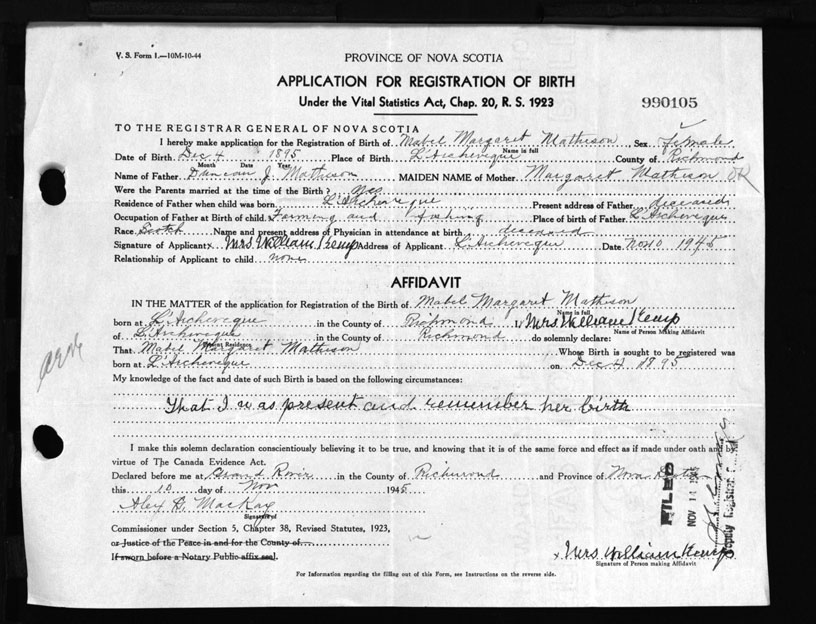 V. S. Form 1.—10M-10-44
PROVINCE OF NOVA SCOTIA
APPLICATION FOR REGISTRATION OF BIRTH
Under the Vital Statistics Act, Chap. 20, R. S. 1923
990105
TO THE REGISTRAR GENERAL OF NOVA SCOTIA
I hereby make application for the Registration of Birth of Mabel Margaret Mathison, Sex female
Name in full
Date of Birth Dec 4 1895 Place of Birth L'Archeveque County of Richmond
Month Date Year
Name of Father Duncan J. Mathison MAIDEN NAME of Mother Margaret Mathison OR
Were the Parents married at the time of the Birth? yes
Residence of Father when child was born L'Archeveque Present address of Father deceased
Occupation of Father at Birth of child Farming and fishing Place of birth of Father L'Archeveque
Race Scotch Name and present address of Physician in attendance at birth deceased
Signature of Applicant x Mrs William Kemp Address of Applicant L'Archeveque Date Nov 10 1945
Relationship of Applicant to child none
AFFIDAVIT
IN THE MATTER of the application for Registration of the Birth of Mabel Margaret Mathison
Name in full
born at L'Archeveque in the County of Richmond I, Mrs William Kemp
Name of Person Making Affidavit
of L'Archeveque in the County of Richmond do solemnly declare:
Present Residence
That Mabel Margaret Mathison Whose Birth is sought to be registered was
born at L'Archeveque on Dec 4 1895
My knowledge of the fact and date of such Birth is based on the following circumstances:
That I was present and remember her birth
I make this solemn declaration conscientiously believing it to be true, and knowing that it is of the same force and effect as if made under oath and by
virtue of The Canada Evidence Act.
Declared before me at Grand River in the County of Richmond and Province of Nova Scotia
this 10 day of Nov 1945
Alex D. MacKay
Signature of
Commissioner under Section 5, Chapter 38, Revised Statutes, 1923,
or Justice of the Peace in and for the County of
If sworn before a Notary Public affix seal.
x Mrs William Kemp
Signature of Person making Affidavit
For Information regarding the filling out of this Form, see Instructions on the reverse side.
FILED
NOV 14 1945
Deputy Registrar General